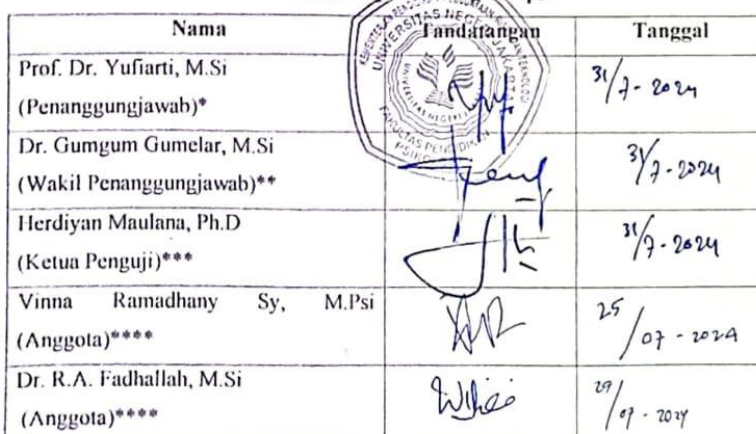 Nama Tandatangan Tanggal
Prof. Dr. Yufiarti, M.Si
(Penanggungjawab)*
31/7 - 2024
Dr. Gumgum Gumelar, M.Si
(Wakil Penanggungjawab)**
31/7 - 2024
Herdiyan Maulana, Ph.D
(Ketua Penguji)***
31/7 - 2024
Vinna Ramadhany Sy, M.Psi
(Anggota)****
25/07 - 2024
Dr. R.A. Fadhallah, M.Si
(Anggota)****
29/07 - 2024
UNIVERSITAS NEGERI JAKARTA
FAKULTAS PENDIDIKAN
PSIKOLOGI